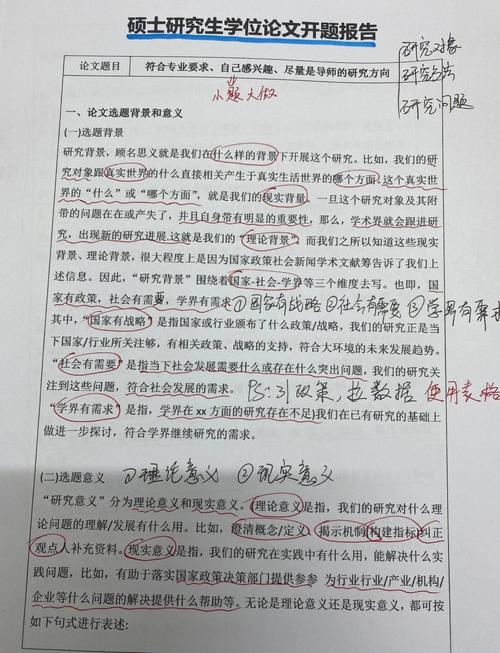 硕士研究生学位论文开题报告
研究对象
研究方法
研究问题
论文题目 符合专业要求、自己感兴趣、尽量是导师的研究方向
小题大做
一、论文选题背景和意义
(一)选题背景
研究背景，顾名思义就是我们在什么样的背景下开展这个研究。比如，我们的研
究对象跟真实世界的什么直接相关产生于真实生活世界的哪个方面，这个真实世
界的“什么”或“哪个方面”，就是我们的现实背景。一旦这个研究对象及其附
带的问题在在或产失了，并且自身带有明显的重要性，那么，学术界就会跟进研
究，出现新的研究进展.这就是我们的“理论背景”。而我们之所以知道这些现实
背景、理论背景，很大程度上是因为国家政策社会新闻学术文献筹告诉了我们上
述信息。因此，“研究背景”围绕着国家-社会-学界等三个维度去写。也即，国
家有政策，社会有需要，学界有需求 ①国家有战略②社会有需要③学界有需求
其中，“国家有战略”是指国家或行业颁布了什么政策/战略，我们的研究正是当
下国家/行业所关注够，有相关政策、战略的支持，符合大环境的未来发展趋势。
“社会有需要”是指当下社会发展需要什么或存在什么突出问题，我们的研究关
注到这些问题，符合社会发展的需求。 PS:引政策，拉数据 使用表格
“学界有需求”是指，学界在 xx 方面的研究存在不足)我们在已有研究的基础上
做进一步探讨，符合学界继续研究的需求。
(二)选题意义 ①理论意义 ②现实意义
“研究意义”分为理论意义和现实意义。理论意义是指，我们的研究对什么理
论问题的理解/发展有什么用。比如，澄清概念/定义、揭示机制 构建指标 纠正
观点人补充资料。现实意义是指，我们的研究在实践中有什么用，能解决什么实
践问题，比如，有助于落实国家政策决策部门提供参参 为行业行业/产业/机构/
企业等什么问题的解决提供什么帮助等。无论是理论意义还是现实意义，都可按
如下句式进行表述: